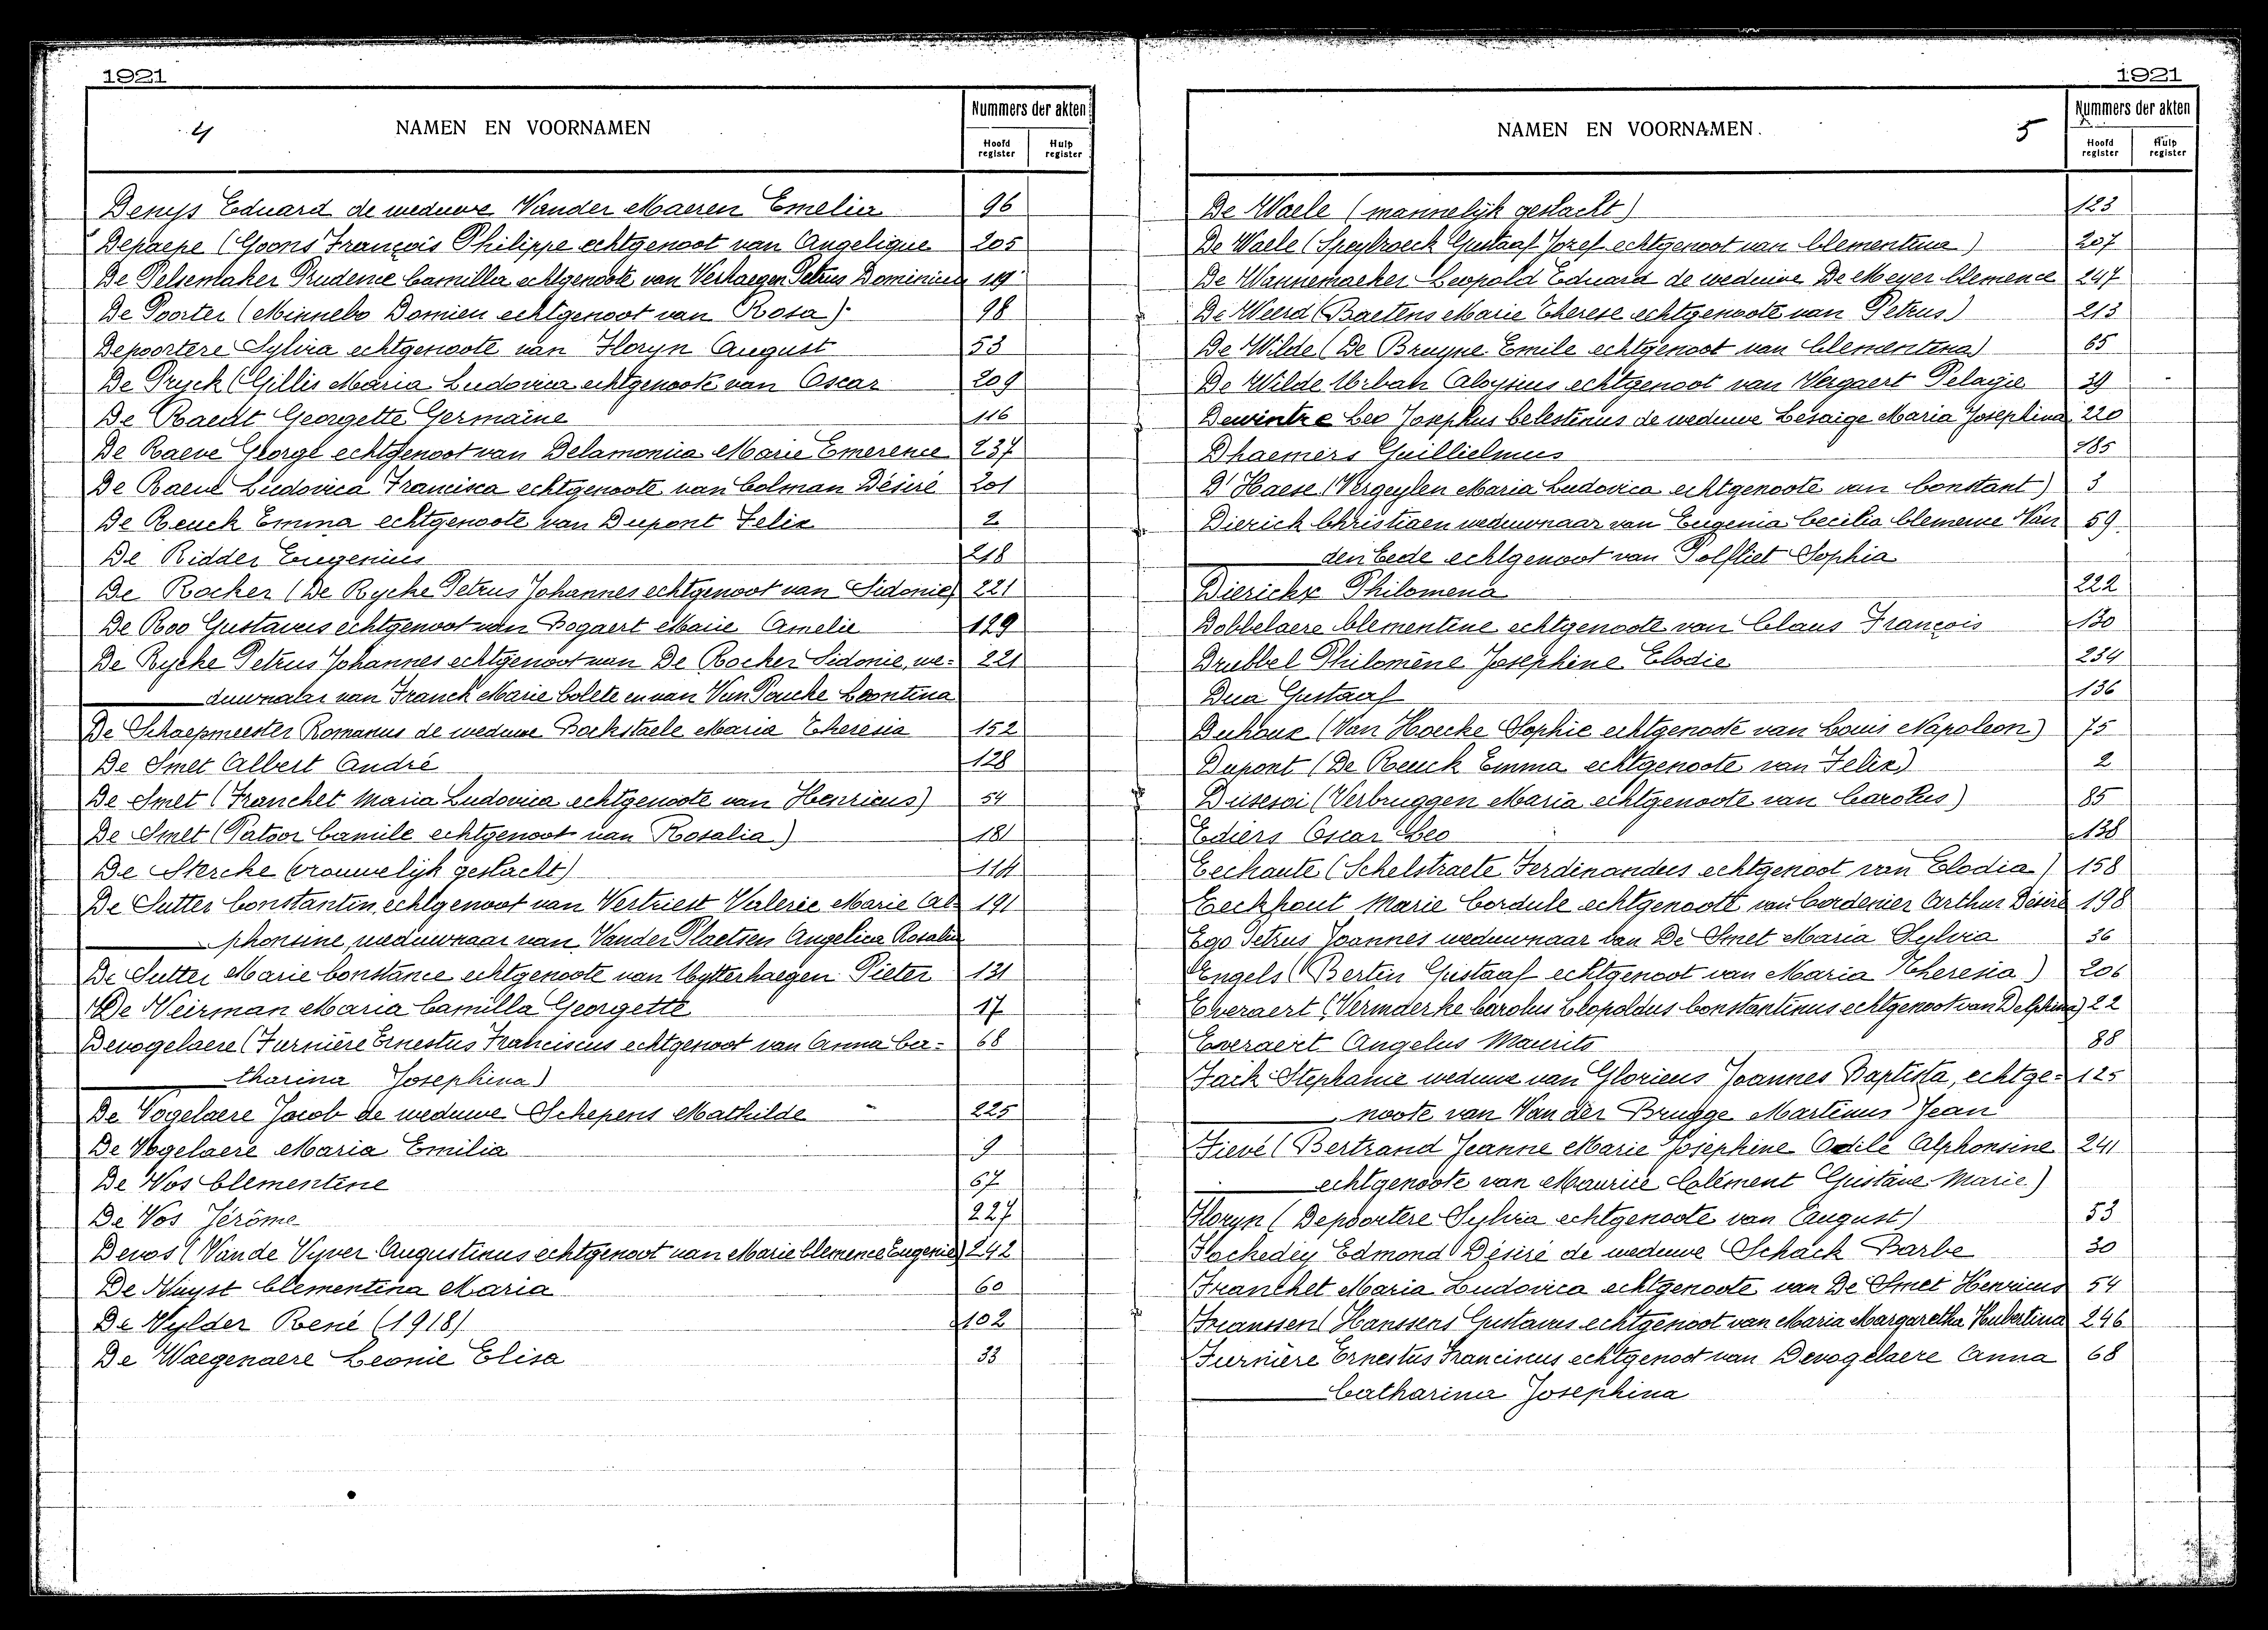 1921
4
NAMEN EN VOORNAMEN
Nummers der akten
Hoofd register
Hulp register
Denys Eduard de weduwe Vander Maeren Emelia 96
Depaepe (Goons François Philippe echtgenoot van Angelique 205
De Pelsemaker Prudence Camilla echtgenoote van Verhaegen Petrus Dominicus 119
De Poorter (Minnebo Domien echtgenoot van Rosa) 98
Depoortere Sylvia echtgenoote van Floryn August 53
De Pryck (Gillis Maria Ludovica echtgenoote van Oscar 209
De Raedt Georgette Germaine 116
De Raeve George echtgenoot van Delamonica Marie Emerence 237
De Raeve Ludovica Francisca echtgenoote van Colman Désiré 201
De Reuck Emma echtgenoote van Dupont Felix 2
De Ridder Eugenius 218
De Rocker (De Rycke Petrus Johannes echtgenoot van Sidonie) 221
De Roo Gustavus echtgenoot van Bogaert Marie Amelie 129
De Rycke Petrus Johannes echtgenoot van De Rocker Sidonie, we= 221
duwnaar van Franck Marie Colete en van Van Poucke Leontina
De Schaepmeester Romanus de weduwe Bockstaele Maria Theresia 152
De Smet Albert André 128
De Smet (Franchet Maria Ludovica echtgenoote van Henricus) 54
De Smet (Patoor Camile echtgenoot van Rosalia) 181
De Stercke (vrouwelijk geslacht) 114
De Sutter Constantin, echtgenoot van Vertriest Valerie Marie Al= 191
phonsine, weduwnaar van Vander Plaetsen Angelica Rosalie
De Sutter Marie Constance echtgenoote van Uytterhaegen Pieter 131
De Veirman Maria Camilla Georgette 17
Devogelaere (Furnière Ernestus Franciscus echtgenoot van Anna Ca= 68
tharina Josephina)
De Vogelaere Jacob de weduwe Schepens Mathilde 225
De Vogelaere Maria Emilia 9
De Vos Clementine 67
De Vos Jérôme 227
Devos (Vande Vyver Augustinus echtgenoot van Marie Clemence Eugenie) 242
De Vuyst Clementina Maria 60
De Vylder René (1918) 102
De Waegenaere Leonie Elisa 33
1921
NAMEN EN VOORNAMEN.
5
Nummers der akten
Hoofd register
Hulp register
De Waele (mannelijk geslacht) 123
De Waele (Speybroeck Gustaaf Jozef echtgenoot van Clementina) 207
De Wannemaeker Leopold Eduard de weduwe De Meyer Clemence 247
De Weerd (Baetens Marie Therese echtgenoote van Petrus) 213
De Wilde (De Bruyne Emile echtgenoot van Clementina) 65
De Wilde Urban Aloysius echtgenoot van Vergaert Pelagie 39
Dewintre Leo Josephus Celestinus de weduwe Lesaige Maria Josephina 220
Dhaemers Guillielmus 185
D'Haese (Vergeylen Maria Ludovica echtgenoote van Constant) 3
Dierick Christiaen weduwnaar van Eugenia Cecilia Clemence Van 59
den Eede echtgenoot van Polfliet Sophia
Dierickx Philomena 222
Dobbelaere Clementine echtgenoote van Claus François 130
Drubbel Philomène Josephine Elodie 234
Dua Gustaaf 136
Duhoux (Van Hoecke Sophie echtgenoote van Louis Napoleon) 75
Dupont (De Reuck Emma echtgenoote van Felix) 2
Dusesoi (Verbruggen Maria echtgenoote van Carolus) 85
Ediers Oscar Leo 138
Eechaute (Schelstraete Ferdinandus echtgenoot van Elodia) 158
Eeckhout Marie Cordule echtgenoote van Cordenier Arthur Désiré 198
Ego Petrus Joannes weduwnaar van De Smet Maria Sylvia 36
Engels (Bertin Gustaaf echtgenoot van Maria Theresia) 206
Everaert (Vermderke Carolus Leopoldus Constantinus echtgenoot van Delphina) 22
Everaert Angelus Maurits 88
Fack Stephanie weduwe van Gloriens Joannes Baptista, echtge= 125
noote van Van der Brugge Martinus Jean
Fievé (Bertrand Jeanne Marie Josephine Odile Alphonsine 241
echtgenoote van Maurice Clément Gustave Marie)
Floryn (Depoortere Sylvia echtgenoote van August) 53
Flockedey Edmond Désiré de weduwe Schack Barbe 30
Franchet Maria Ludovica echtgenoote van De Smet Henricus 54
Franssen (Hanssens Gustavus echtgenoot van Maria Margaretha Hubertina 246
Furnière Ernestus Franciscus echtgenoot van Devogelaere Anna 68
Catharina Josephina